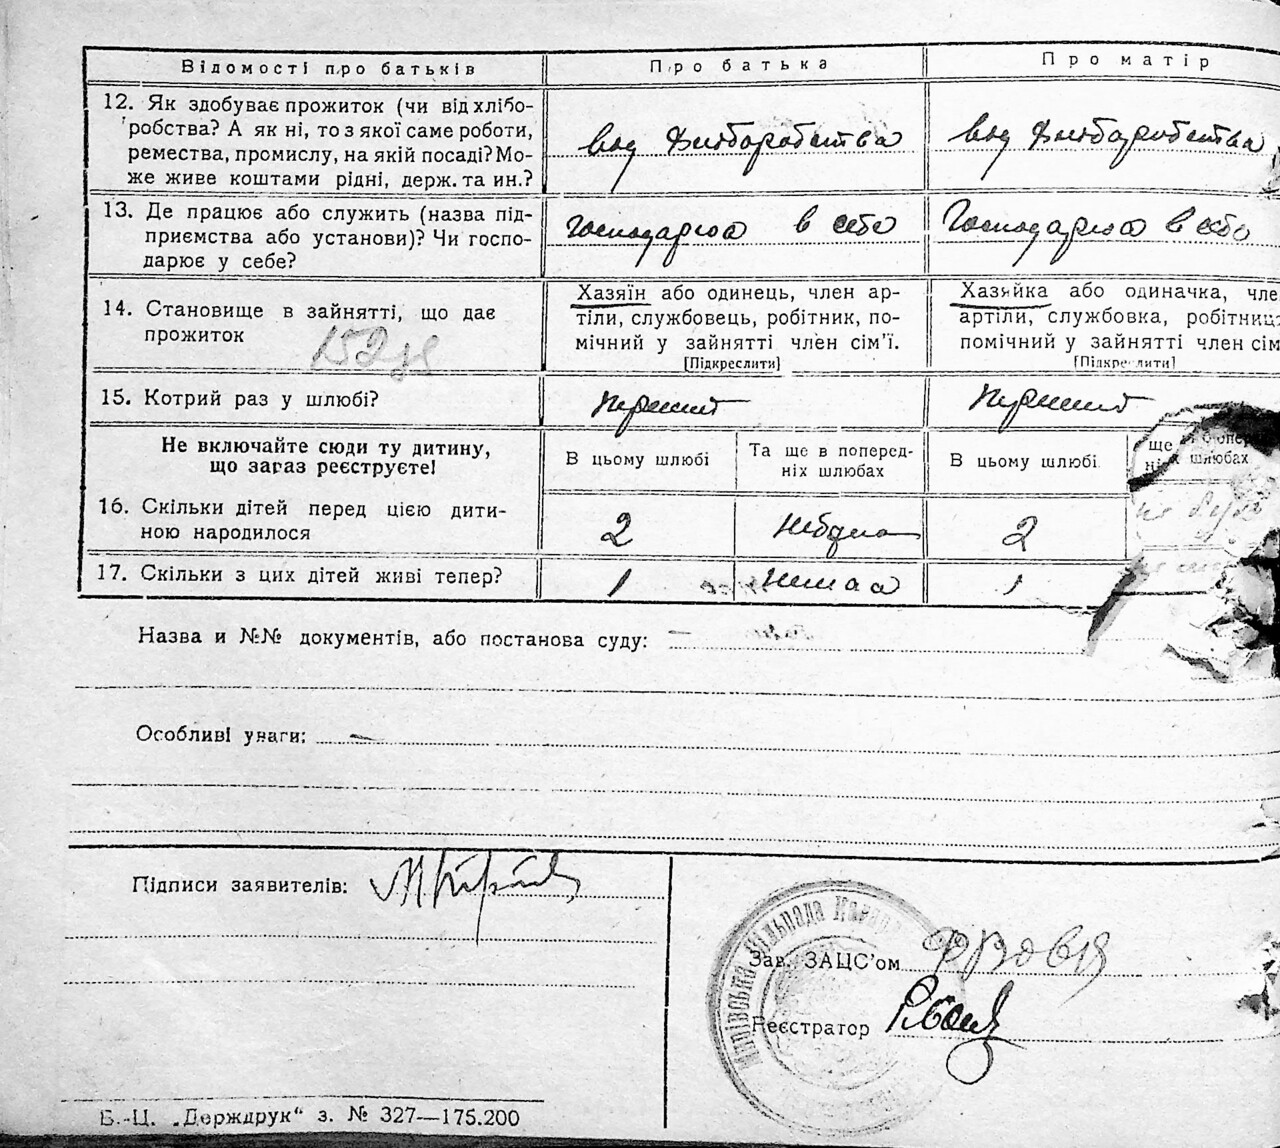 Відомості про батьків
Про батька
Про матір
12. Як здобуває прожиток (чи від хлібо-
робства? А як ні, то з якої саме роботи,
ремества, промислу, на якій посаді? Мо-
же живе коштами рідні, держ. та ин.?
від хліборобства
від хліборобства
13. Де працює або служить (назва під-
приємства або установи)? Чи госпо-
дарює у себе?
Господарює в себе
Господарює в себе
14. Становище в зайнятті, що дає
прожиток
Хазяїн або одинець, член ар-
тілі, службовець, робітник, по-
мічний у зайнятті член сім'ї.
[Підкреслити]
Хазяйка або одиначка, чле
артіли, службовка, робітниц
помічний у зайнятті член сім
[Підкреслити]
15. Котрий раз у шлюбі?
перший
перший
Не включайте сюди ту дитину,
що зараз реєструєте!
В цьому шлюбі
Та ще в поперед-
ніх шлюбах
В цьому шлюбі
ще
шлюбах
16. Скільки дітей перед цією дити-
ною народилося
2
небуло
2
17. Скільки з цих дітей живі тепер?
1
немає
1
Назва и №№ документів, або постанова суду: —
Особливі уваги: —
Підписи заявителів:
Зав. ЗАЦС'ом
Реєстратор
Б.-Ц. „Держдрук“ з. № 327—175.200